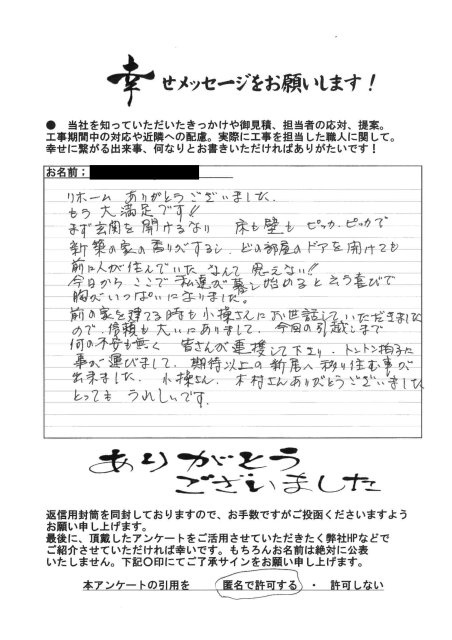 幸せメッセージをお願いします！
● 当社を知っていただいたきっかけや御見積、担当者の応対、提案。
工事期間中の対応や近隣への配慮。実際に工事を担当した職人に関して。
幸せに繋がる出来事、何なりとお書きいただければありがたいです！
お名前：
リホーム ありがとうございました。
もう 大満足です!!
まず玄関を開けるなり 床も壁も ピッカピッカで
新築の家の香りがするし、どの部屋のドアを開けても
前に人が住んでいた なんて 思えない!!
今日から ここで 私達が暮し始めると云う喜びで
胸がいっぱいになりました。
前の家を建てる時も小操さんにお世話していただきました
ので、信頼も大いにありまして、今回の引越しまで
何の不安も無く 皆さんが連携して下さり、トントン拍子に
事が運びまして、期待以上の新居へ移り住む事が
出来ました。小操さん、木村さんありがとうございました
とっても うれしいです。
ありがとう
ございました
返信用封筒を同封しておりますので、お手数ですがご投函くださいますよう
お願い申し上げます。
最後に、頂戴したアンケートをご活用させていただきたく弊社HPなどで
ご紹介させていただければ幸いです。もちろんお名前は絶対に公表
いたしません。下記〇印にてご了承サインをお願い申し上げます。
本アンケートの引用を 匿名で許可する ・ 許可しない